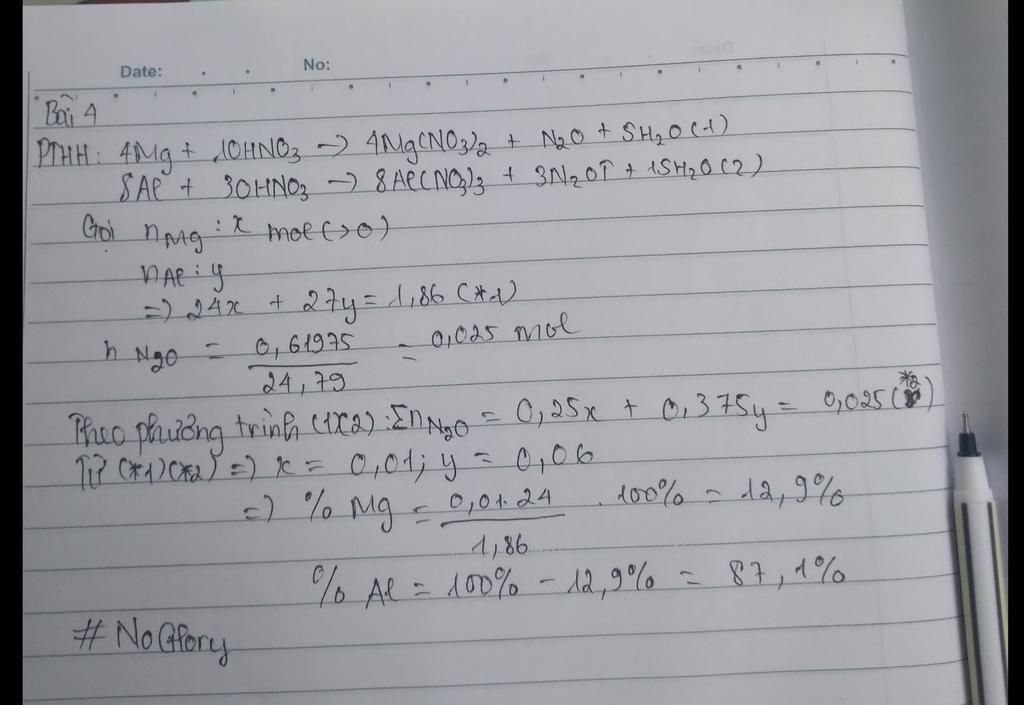 Date: No:
Bài 4
PTHH: 4Mg + 10HNO3 -> 4Mg(NO3)2 + N2O + 5H2O (1)
8Al + 30HNO3 -> 8Al(NO3)3 + 3N2O↑ + 15H2O (2)
Gọi nMg : x mol (>0)
nAl : y
=> 24x + 27y = 1,86 (*1)
n N2O = 0,61975 / 24,79 = 0,025 mol
Theo phương trình (1)(2) : Σn N2O = 0,25x + 0,375y = 0,025 (*2)
Từ (*1)(*2) => x = 0,01; y = 0,06
=> % Mg = 0,01.24 / 1,86 . 100% = 12,9%
% Al = 100% - 12,9% = 87,1%
# NoGlory